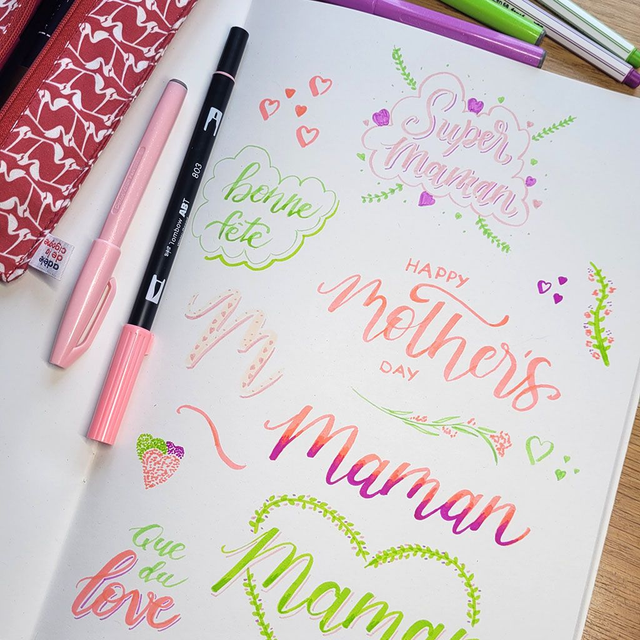 Super
Maman
bonne
fête
HAPPY
mother's
DAY
m
Maman
Que
du
love
Maman
803
Tombow ABT